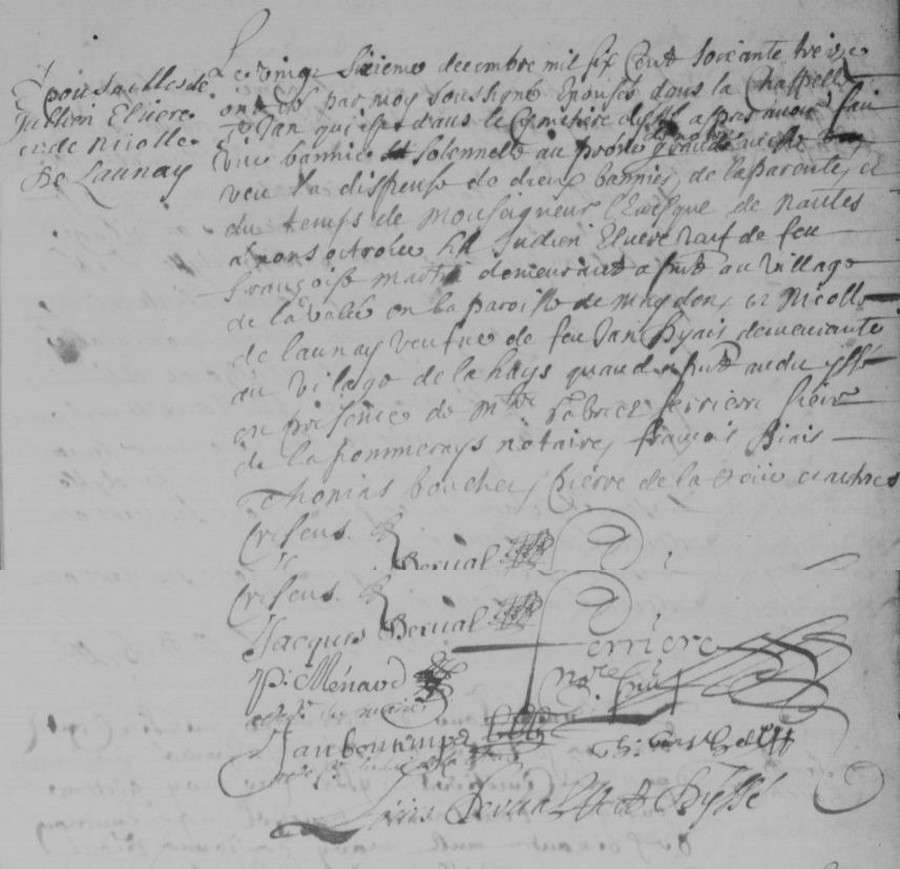 Epousailles de
Jullien Eluere
et de Nicolle
De Launay
Le vingt sixieme decembre mil six cent soixante treize
ont esté par moy soussigné Epousés dans la Chappelle
St Jan qui est dans le Cymetiere d'yssé apres avoir fait
une bannie solennelle au prosne de grande messe
veu la dispense de deux bannies, de la parenté, et
du temps de Monseigneur l'Evesque de Nantes
a nous octroiee Jullien Eluere vauf de feu
Françoise Martin demeurant a au village
de la valee en la paroisse de Moydon, et Nicolle
de Launay veufve de feu Jan Byais demeurante
au vilage de la hays quand audit yssé
en presence de Mtre Gabriel ferriere sieur
de la pommerays notaire, françois Biais
Thomas boucher, Pierre de la et autres
Presens.
Bernal
Presens.
Jacques Bernal
Ferriere
P. Ménard
nore
Jan bontemps
d'yssé